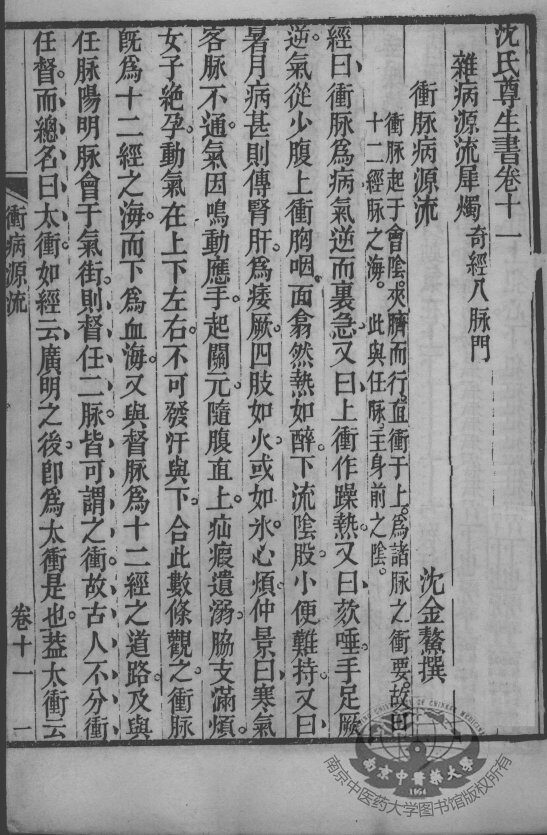 沈氏尊生書卷十一
雜病源流犀燭 奇經八脉門
沈金鰲撰
衝脉病源流
衝脉起于會陰。夾臍而行。直衝于上。爲諸脉之衝要。故曰
十二經脉之海。此與任脉。主身前之陰。
經曰衝脉爲病氣逆而裏急。又曰上衝作躁熱。又曰欬唾手足厥
逆。氣從少腹上衝胸咽。面翕然熱如醉。下流陰股。小便難持。又曰
暑月病甚則傳腎肝。爲痿厥。四肢如火或如氷。心煩。仲景曰寒氣
客脉不通。氣因鳴動應手。起關元隨腹直上。疝瘕遺溺。脇支滿煩。
女子絶孕。動氣在上下左右。不可發汗與下。合此數條觀之。衝脉
旣爲十二經之海。而下爲血海。又與督脉爲十二經之道路。及與
任脉陽明脉會于氣街。則督任二脉。皆可謂之衝。故古人不分衝
任督。而總名曰太衝。如經云廣明之後。卽爲太衝是也。葢太衝云
衝病源流
卷十一
一
CHINESE MEDICINE
南京中醫藥大學
1954
南京中医药大学图书馆版权所有